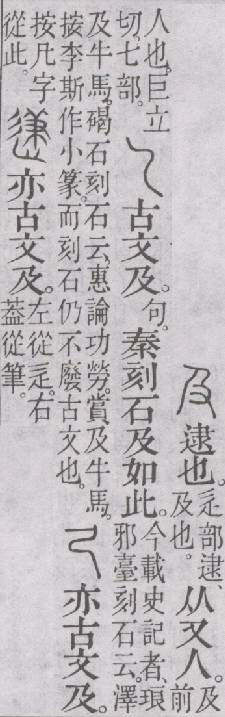 及 逮也。辵部逮、及也。从又人。及前
人也。巨立切。七部。乁 古文及。句。秦刻石及如此。今載史記者、琅邪臺刻石云。澤
及牛馬。碣石刻石云、惠論功勞。賞及牛馬。按李斯作小篆。而刻石仍不廢古文也。亦古文及。
按凡字從此。亦古文及。左從辵。右蓋從筆。